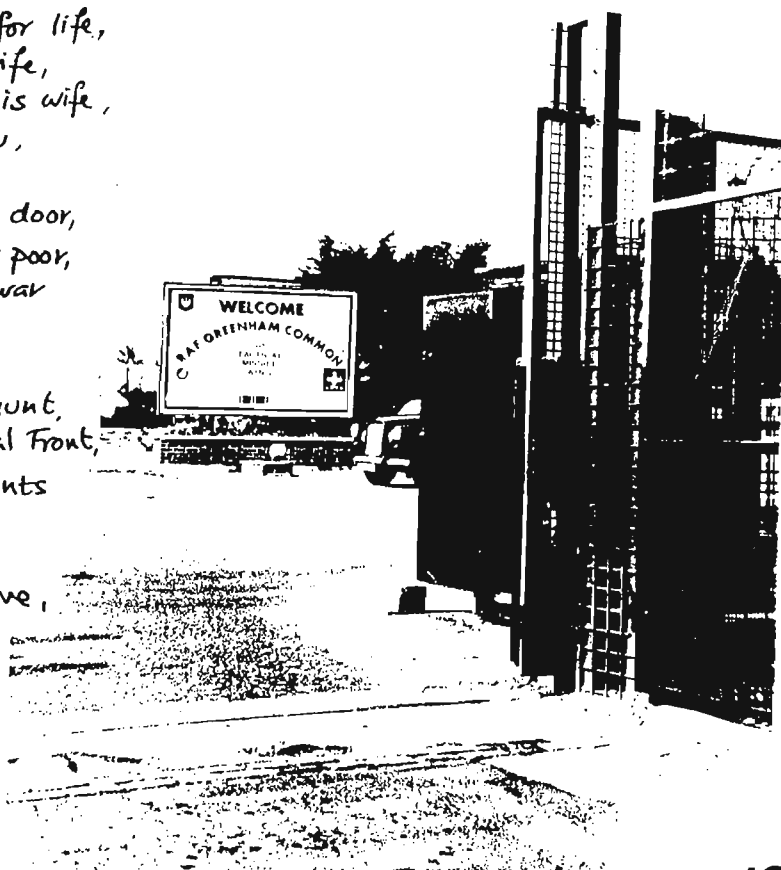 for life,
ife,
is wife,
door,
poor,
war
unt,
al Front,
nts
WELCOME
RAF GREENHAM COMMON